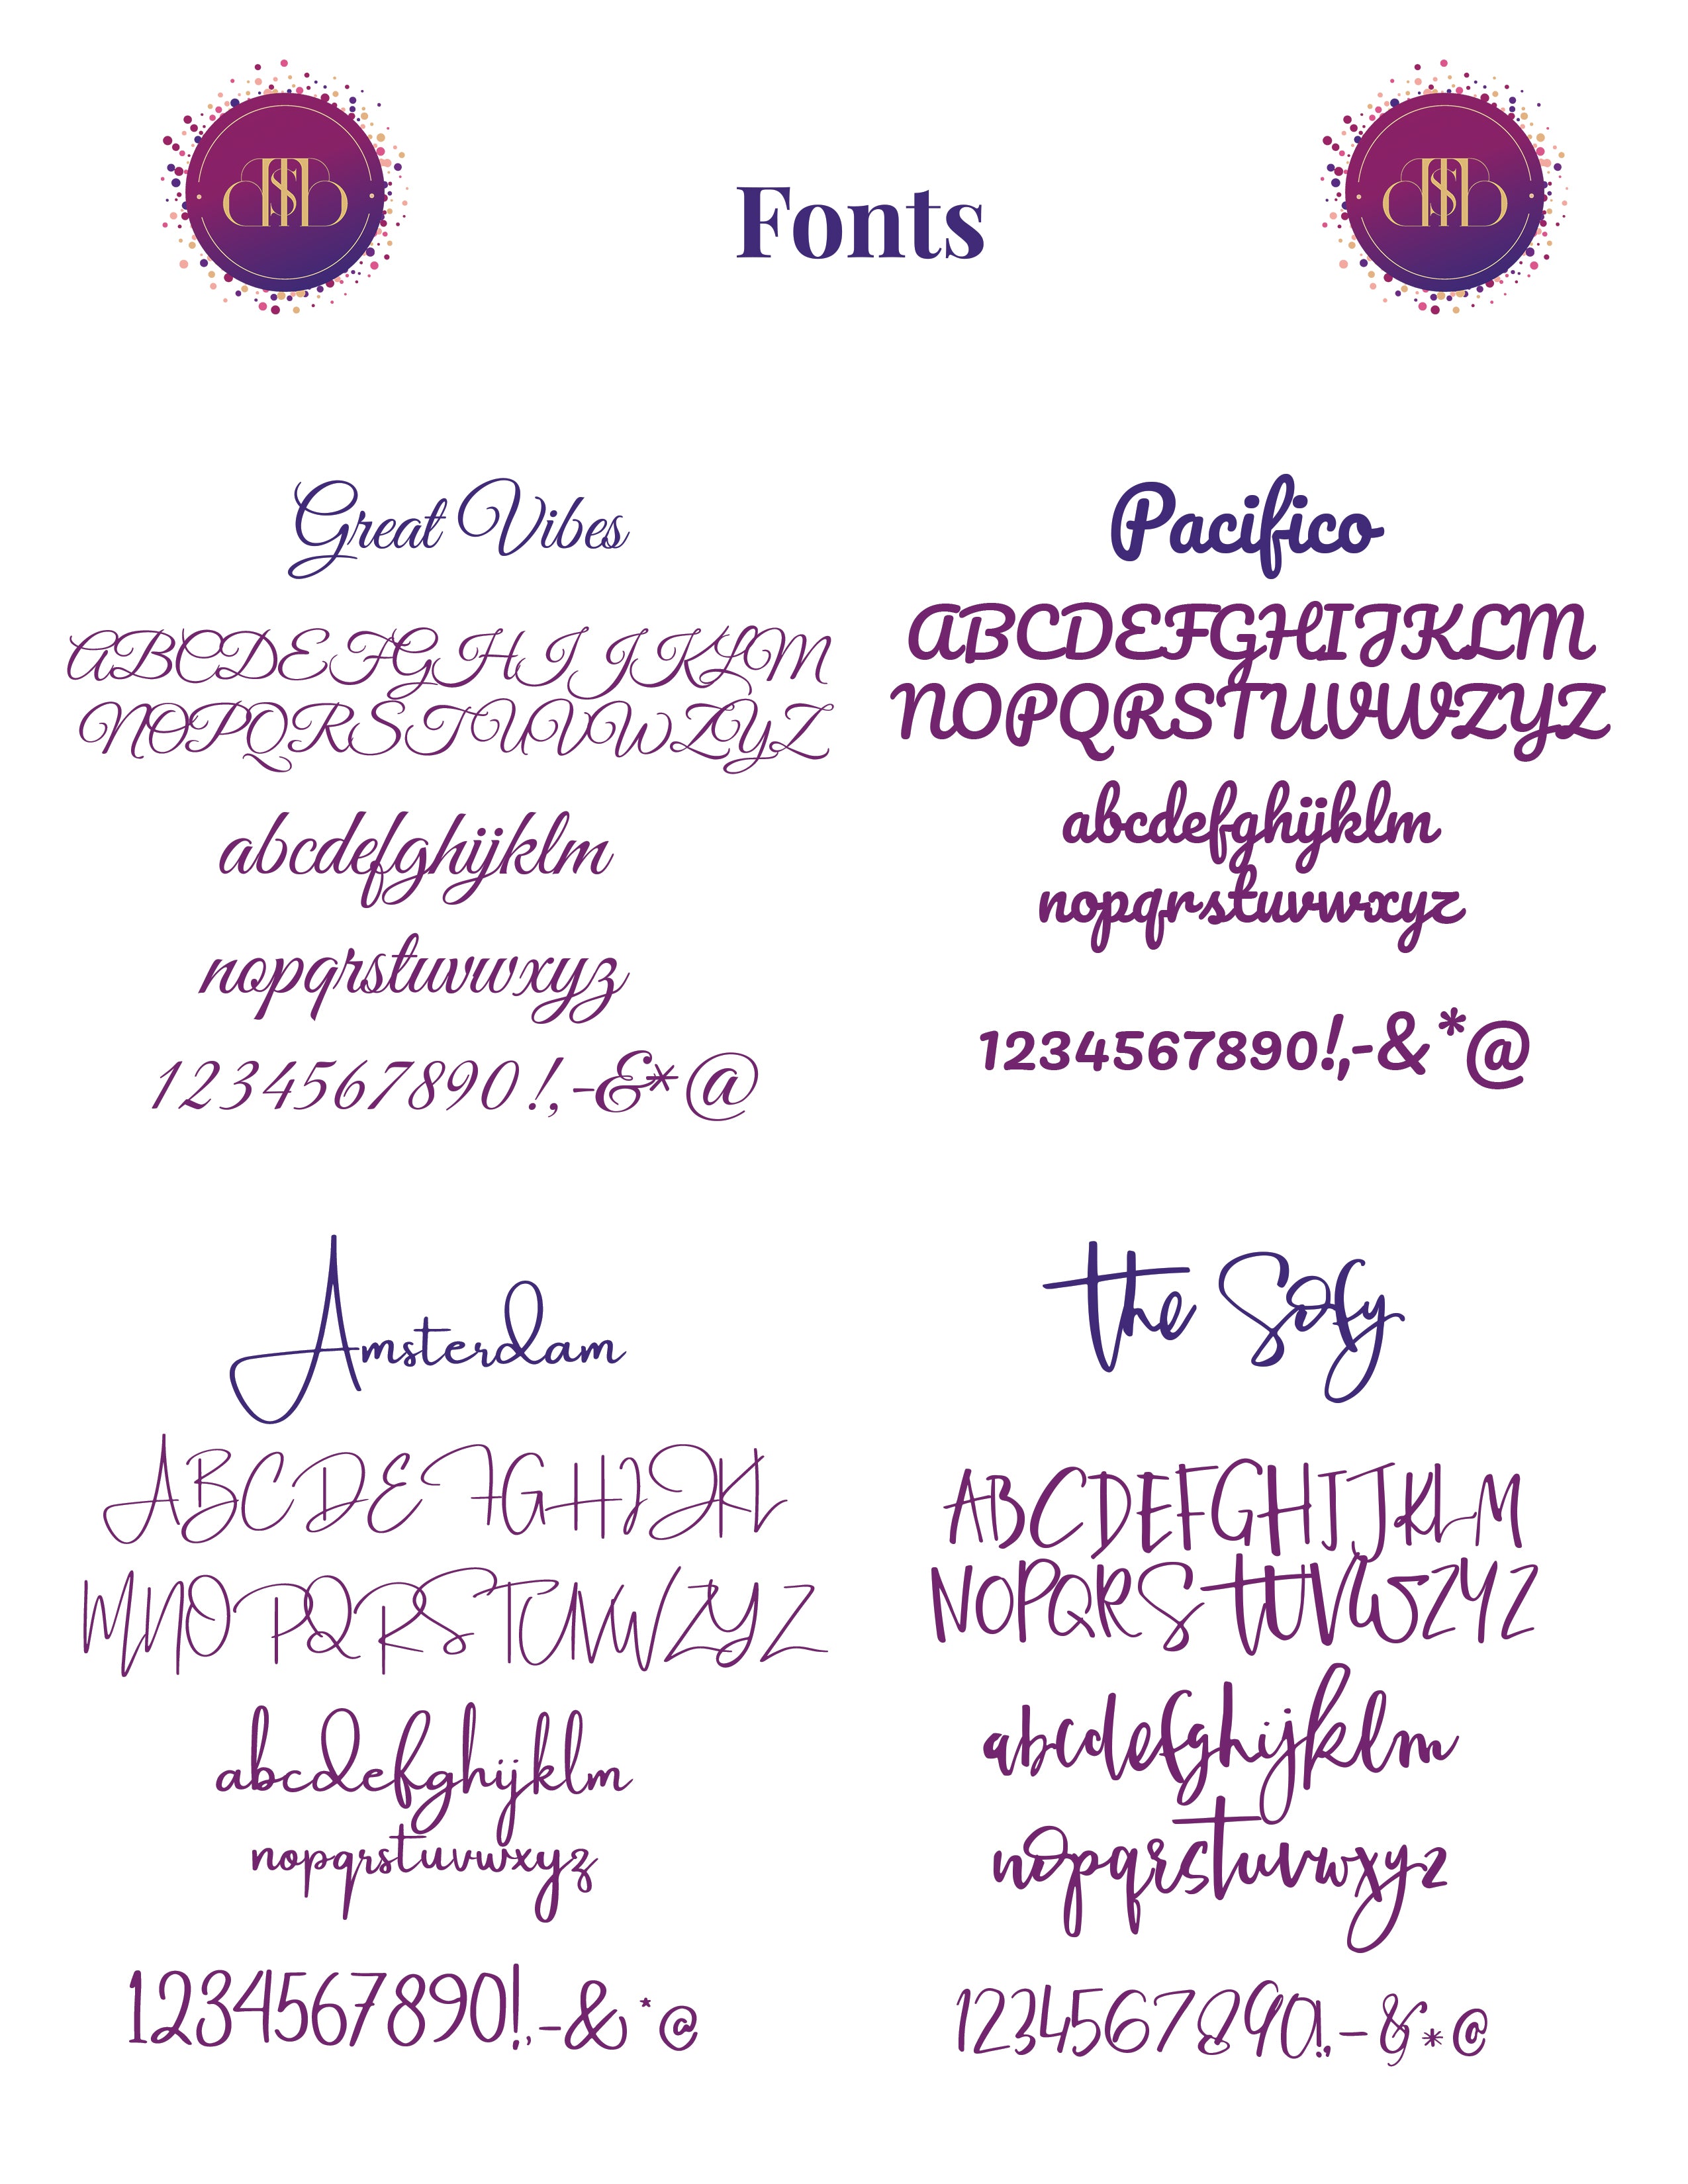 Fonts
Great Vibes
ABCDEFGHIJKLM
NOPQRSTUVWZYZ
abcdefghijklm
nopqrstuvwxyz
1234567890!,-&*@
Pacifico
ABCDEFGHIJKLM
NOPQRSTUVWZYZ
abcdefghijklm
nopqrstuvwxyz
1234567890!,-&*@
Amsterdam
ABCDEFGHIJKL
MNOPQRSTUVWZYZ
abcdefghijklm
nopqrstuvwxyz
1234567890!,-&*@
the Sofy
ABCDEFGHIJKLM
NOPQRSTUVWZYZ
abcdefghijklm
nopqrstuvwxyz
1234567890!,-&*@